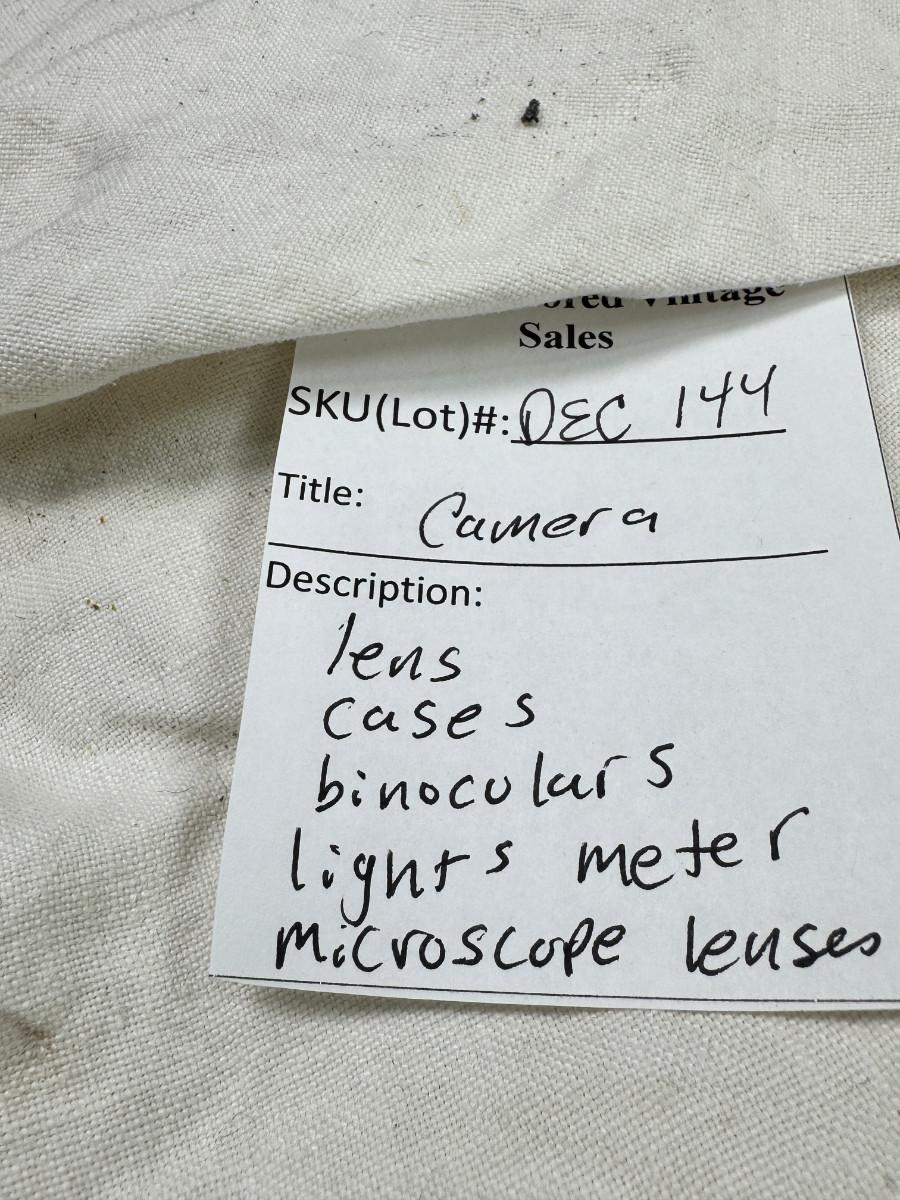 Vintage
Sales
SKU(Lot)#: DEC 144
Title: Camera
Description:
lens
cases
binoculars
lights meter
microscope lenses